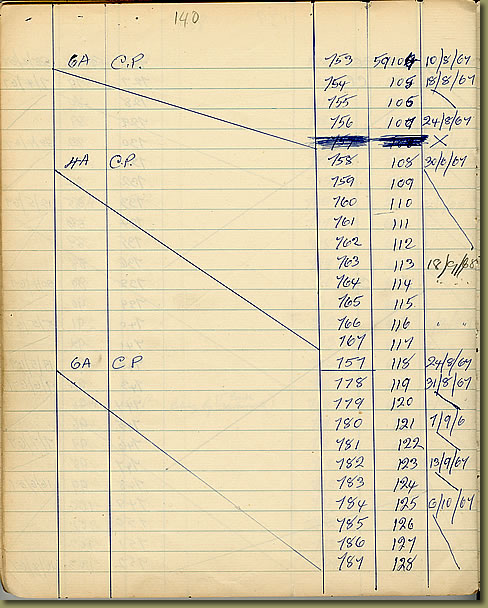 140
6A C.P. 753 59104 10/8/67
754 105 18/8/67
755 106
756 107 24/8/67
X
4A C.P. 758 108 30/6/67
759 109
760 110
761 111
762 112
763 113 18/9/68
764 114 "
765 115
766 116 " "
767 117
6A C P 757 118 24/8/67
778 119 31/8/67
779 120
780 121 7/9/6
781 122
782 123 13/9/67
783 124
784 125 6/10/67
785 126
786 127
787 128